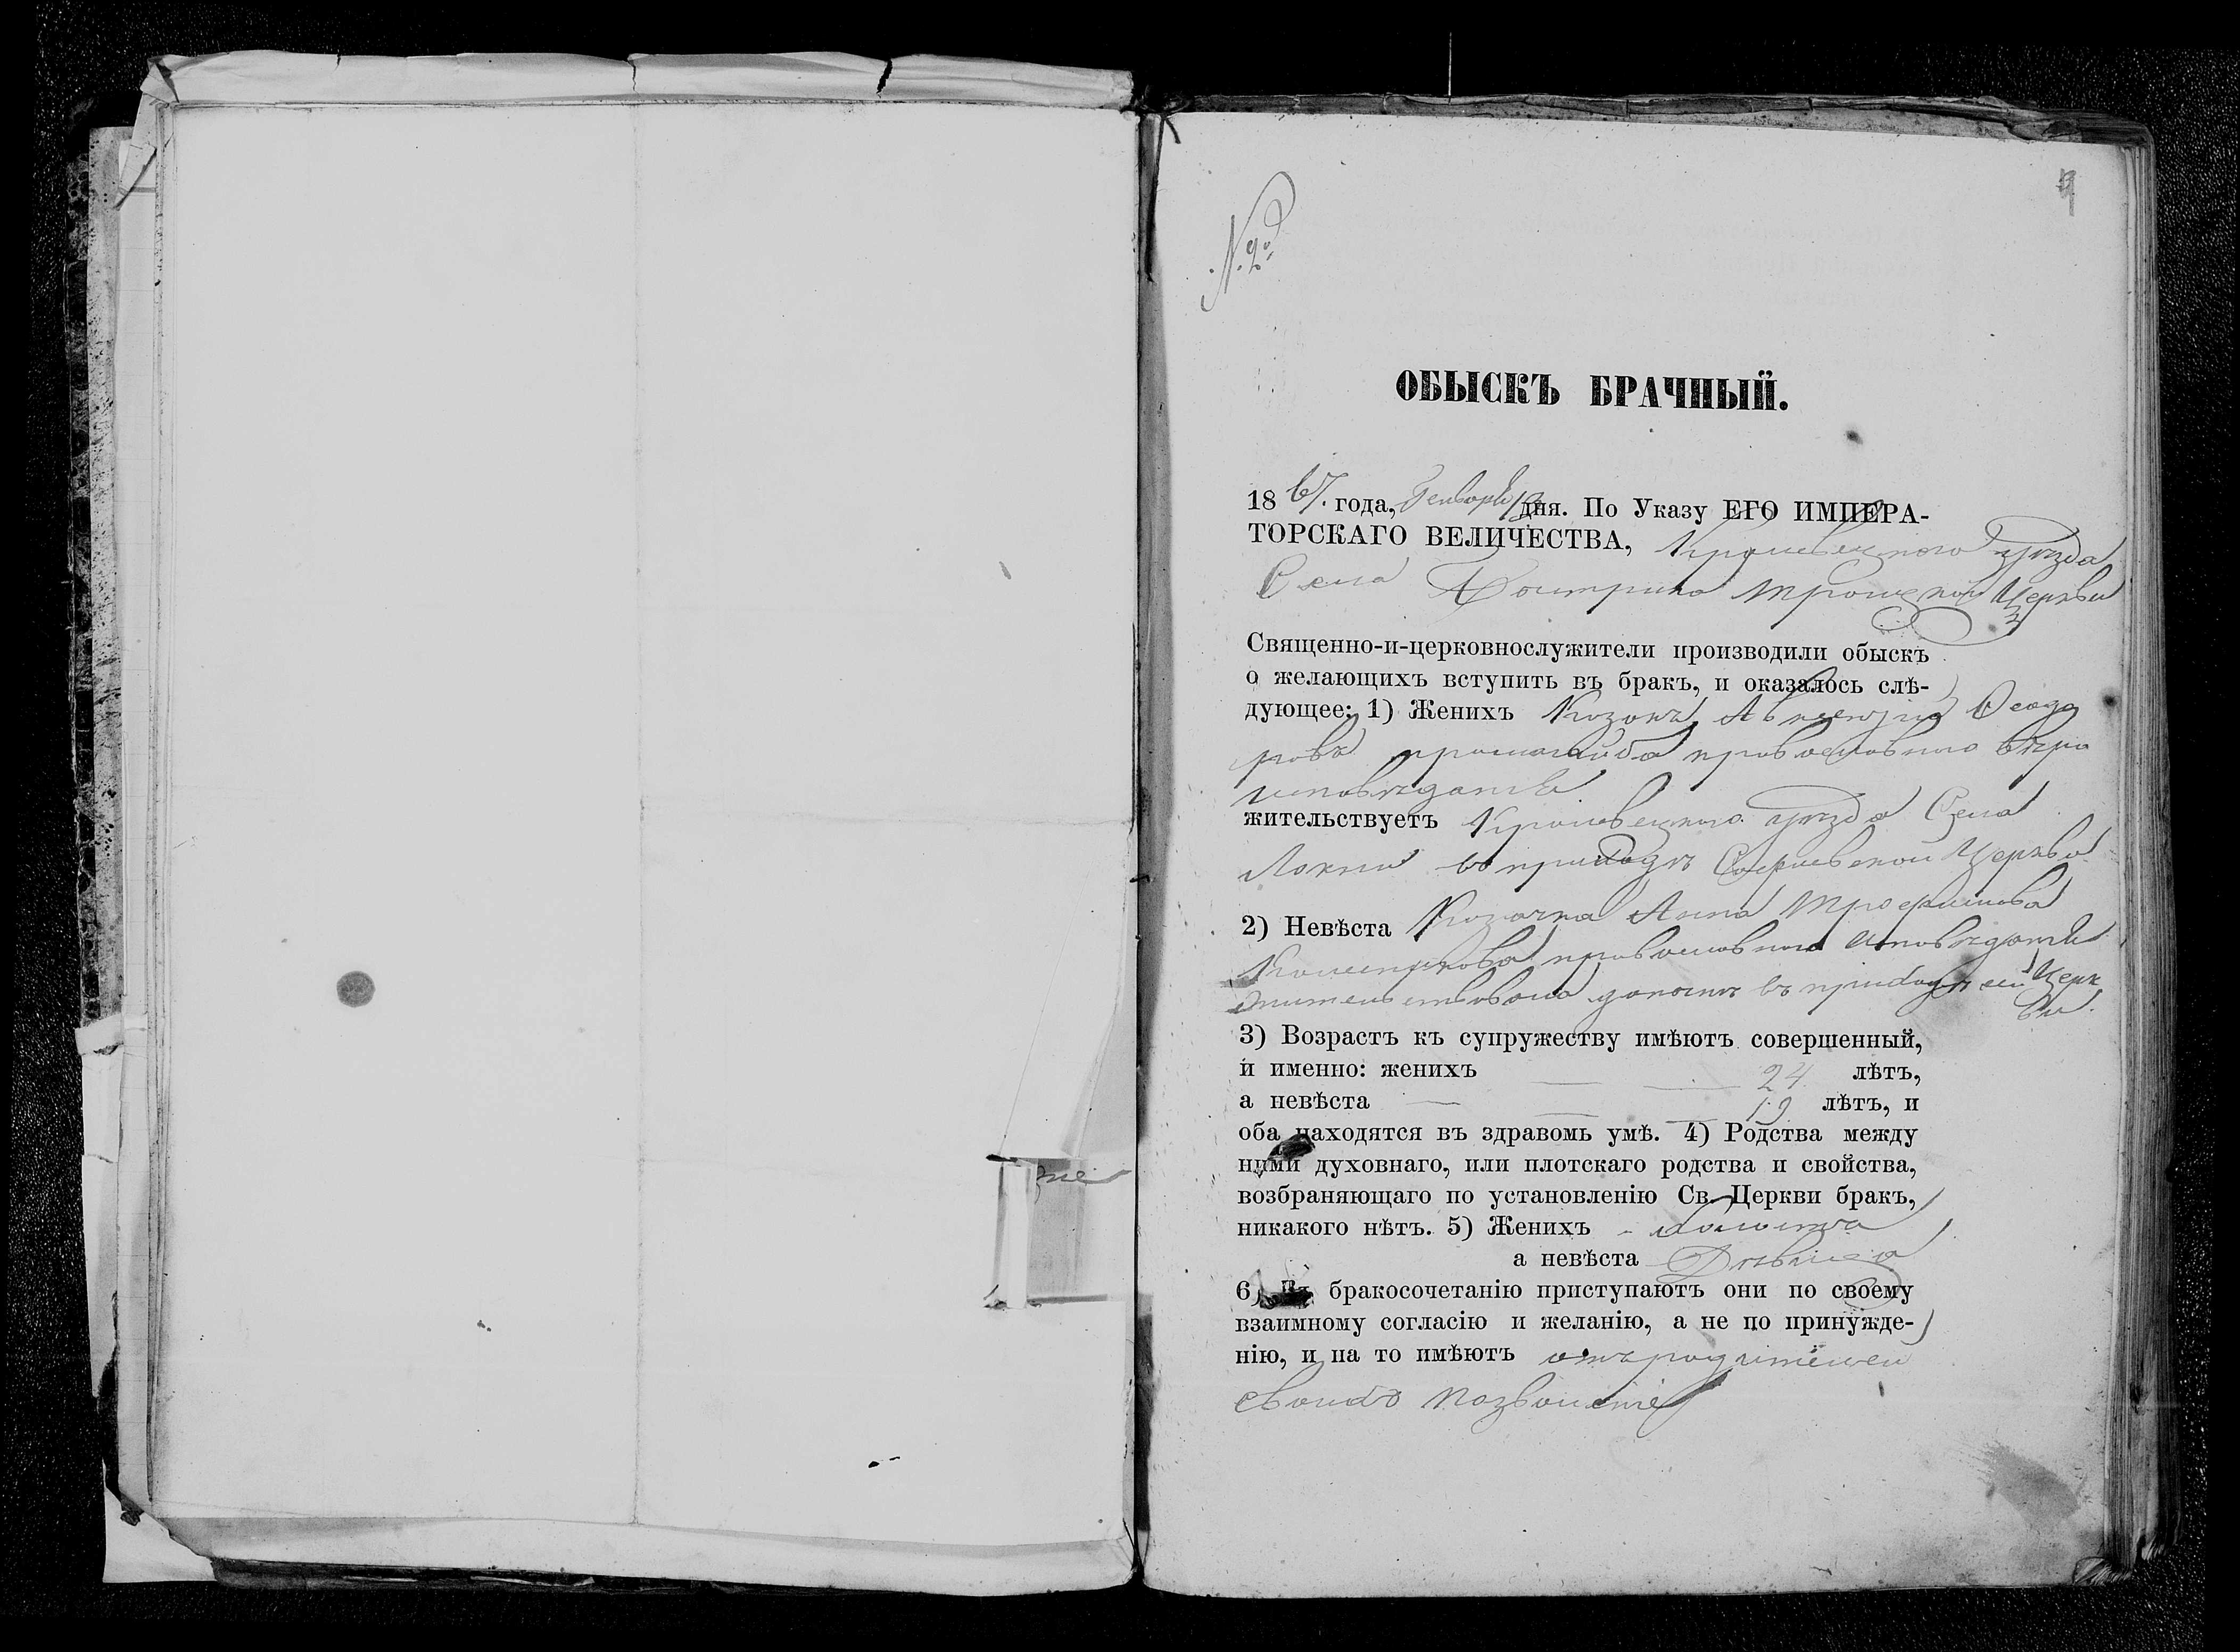 № 2й
ОБЫСКЪ БРАЧНЫЙ.
18 67. года, Генваря дня. По Указу ЕГО ИМПЕРА-
ТОРСКАГО ВЕЛИЧЕСТВА, Кролевецкого уѣзда
Села Троицкой Церкви
Священно-и-церковнослужители производили обыскъ
о желающихъ вступить въ бракъ, и оказалось слѣ-
дующее: 1) Женихъ Козакъ Ѳеодо
ровъ православного вѣро
исповѣданія
жительствуетъ Кролевецкого уѣзда Села
Локни въ приходѣ Софиевской Церкви
2) Невѣста Козачка Анна Трофимова
православного исповѣданія
жительствовала донынѣ въ приходѣ сей Церк
ви.
3) Возрастъ къ супружеству имѣютъ совершенный,
и именно: женихъ 24 лѣтъ,
а невѣста 19 лѣтъ, и
оба находятся въ здравомъ умѣ. 4) Родства между
ними духовнаго, или плотскаго родства и свойства,
возбраняющаго по установленію Св. Церкви бракъ,
никакого нѣтъ. 5) Женихъ холостъ
а невѣста Дѣвица
6) Къ бракосочетанію приступаютъ они по своему
взаимному согласію и желанію, а не по принужде-
нію, и на то имѣютъ отъ родителей
своихъ позволеніе